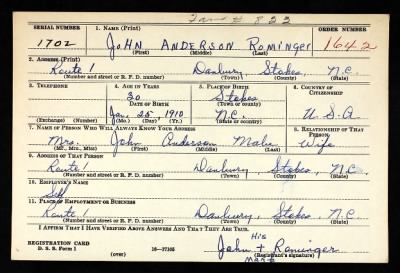 SERIAL NUMBER 1. NAME (Print) ORDER NUMBER
1702 JOHN ANDERSON ROMINGER 1642
(First) (Middle) (Last)
2. ADDRESS (Print)
Route 1 Danbury, Stokes, N.C.
(Number and street or R. F. D. number) (Town) (County) (State)
3. TELEPHONE 4. AGE IN YEARS 5. PLACE OF BIRTH 6. COUNTRY OF CITIZENSHIP
30 Stokes
DATE OF BIRTH (Town or county)
Jan. 25, 1910 N.C. U.S.A
(Exchange) (Number) (Mo.) (Day) (Yr.) (State or country)
7. NAME OF PERSON WHO WILL ALWAYS KNOW YOUR ADDRESS 8. RELATIONSHIP OF THAT PERSON
Mrs. John Anderson Wife
(Mr., Mrs., Miss) (First) (Middle) (Last)
9. ADDRESS OF THAT PERSON
Route 1 Danbury, Stokes, N.C.
(Number and street or R. F. D. number) (Town) (County) (State)
10. EMPLOYER'S NAME
Self
11. PLACE OF EMPLOYMENT OR BUSINESS
Route 1 Danbury, Stokes, N.C.
(Number and street or R. F. D. number) (Town) (County) (State)
I AFFIRM THAT I HAVE VERIFIED ABOVE ANSWERS AND THAT THEY ARE TRUE.
His
REGISTRATION CARD John + Rominger
D. S. S. Form 1 16—17105 (Registrant's signature)
Mark